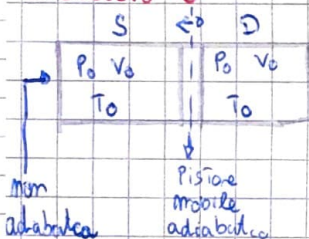 S D
P₀ V₀ P₀ V₀
T₀ T₀
Pistone
mobile
adiabatica
non
adiabatica